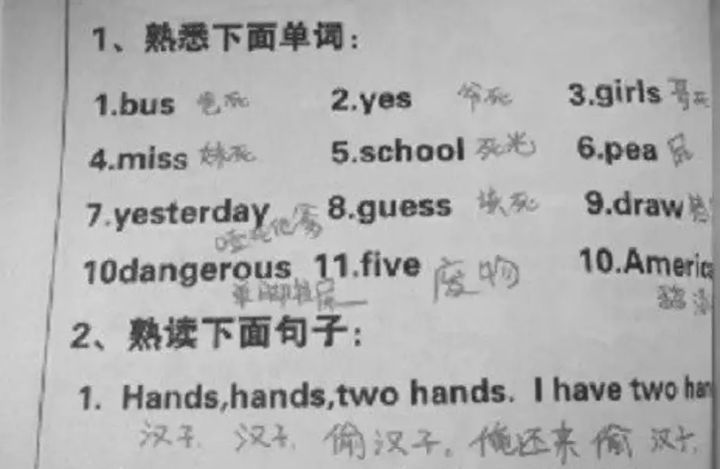 1、熟悉下面单词:
1.bus 爸死 2.yes 爷死 3.girls 哥死
4.miss 妹死 5.school 死光 6.pea 屁
7.yesterday 8.guess 8.guess 9.draw
10dangerous 11.five 废物 10.Americ
2、熟读下面句子:
1. Hands,hands,two hands. I have two han
汉子. 汉子. 偷汉子。俺还来偷汉子.